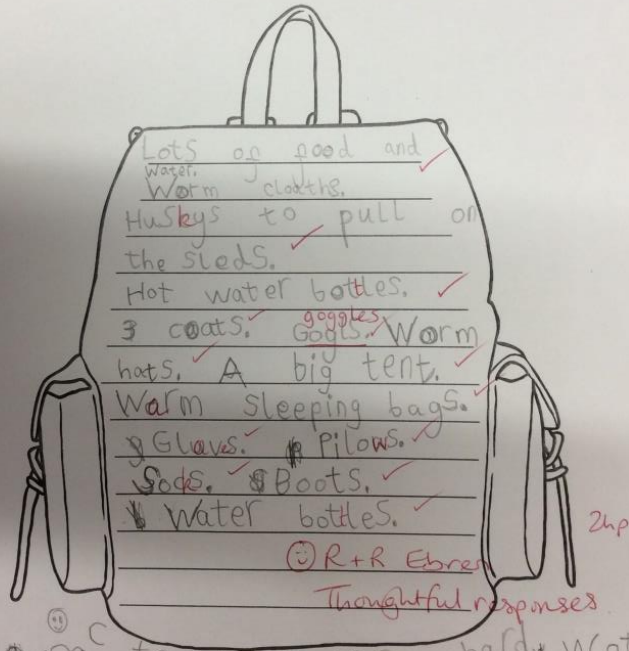 Lots of food and
water.
Worm cloaths.
Huskys to pull on
the sleds.
Hot water bottles.
goggles
3 coats. Gogls. Worm
hats. A big tent.
Warm sleeping bags.
Glaves. Pilows.
Socks. Boots.
Water bottles.
R+R Ebren
2hp
Thoughtful responses
C